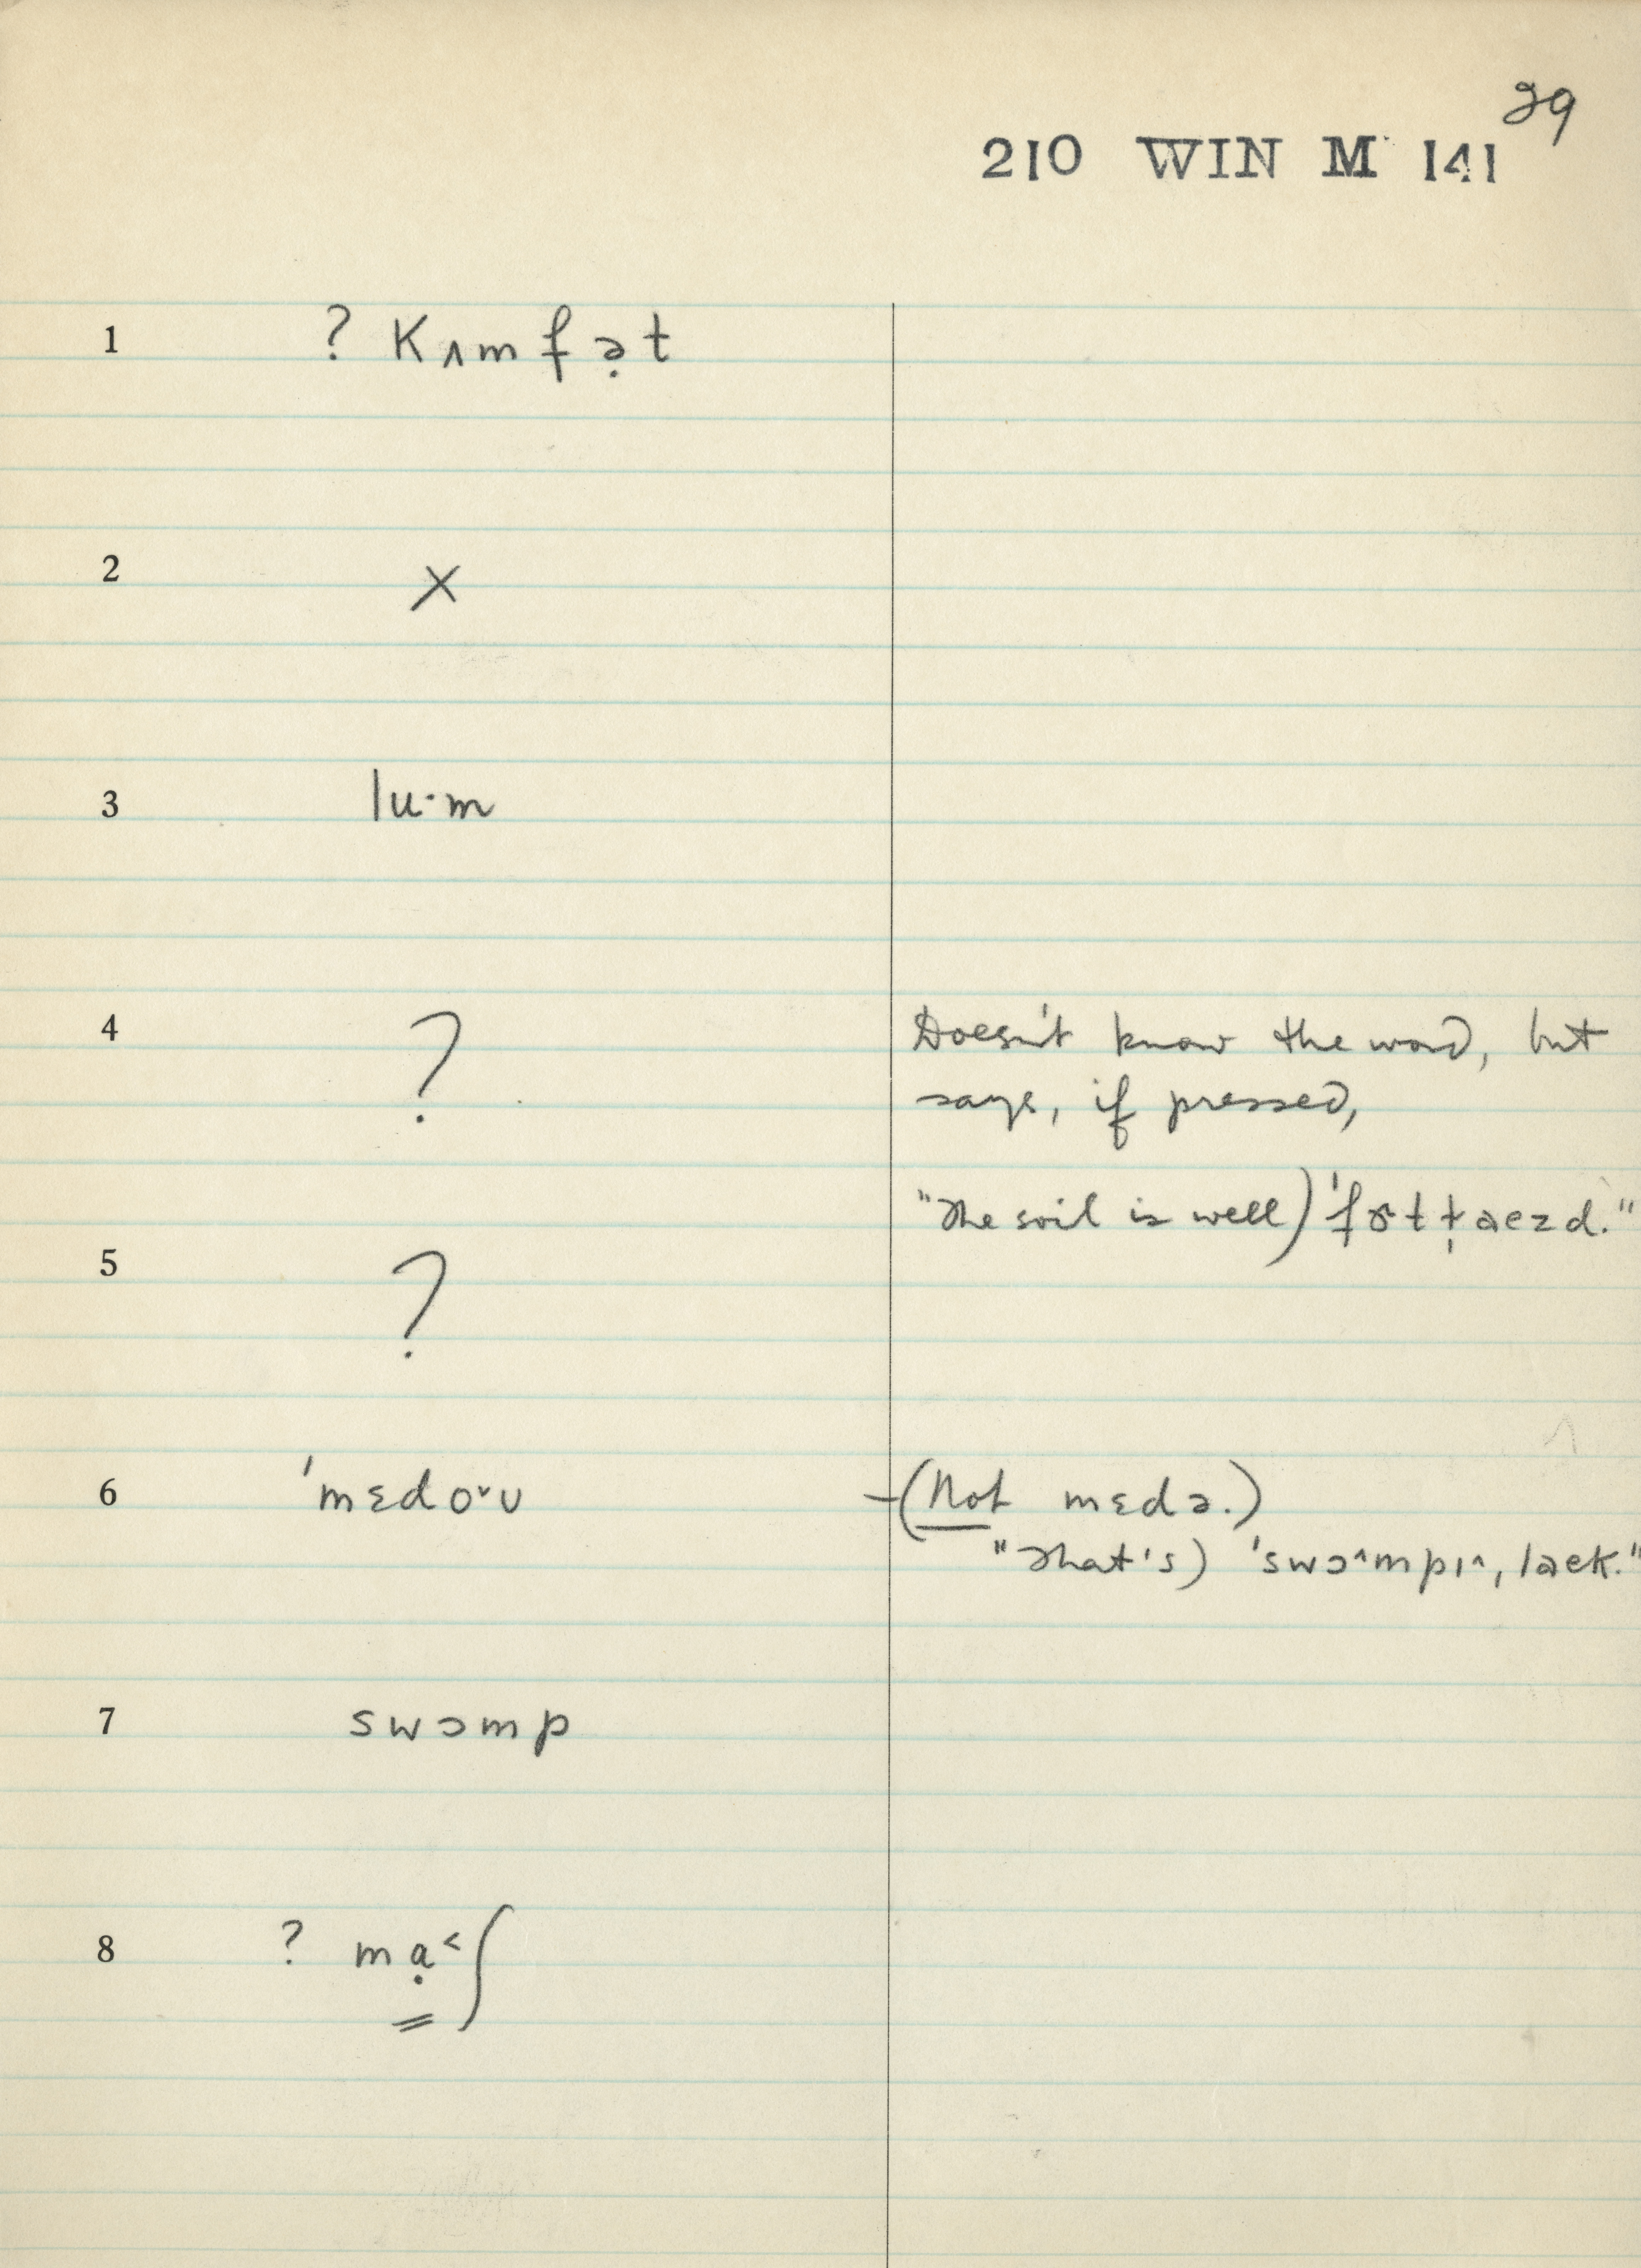 29
210 WIN M 141
1 ? Kʌmfə̣t
2 X
3 lu·m
4 ? Doesn't know the word, but
says, if pressed,
"The soil is well) 'fɚtt̩aezd."
5 ?
6 'mɛdoᵛʊ (Not mɛdə.)
"That's) 'swɔ^mpɪ^, laek."
7 swɔmp
8 ? mạ˂ʃ